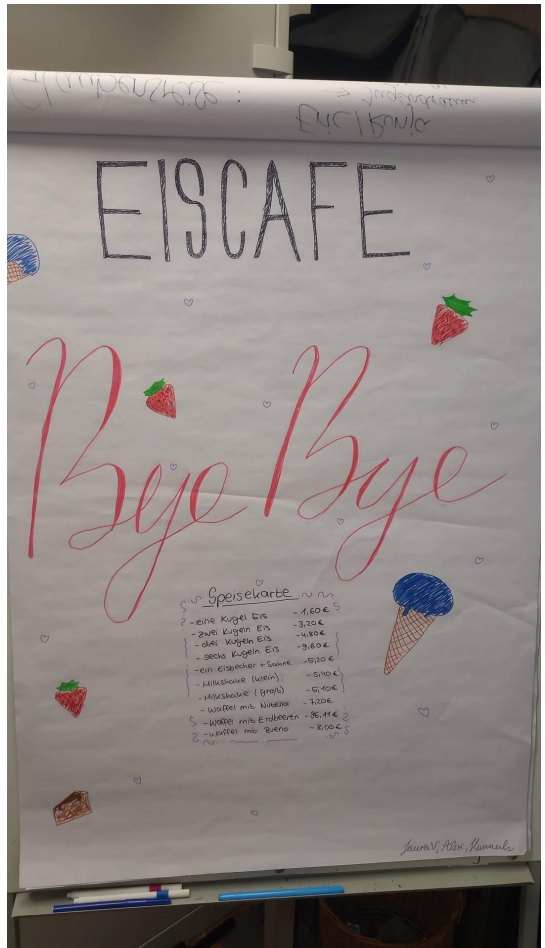 EISCAFE
Bye Bye
Speisekarte
- eine Kugel Eis - 1,60€
- zwei Kugeln Eis - 3,20€
- drei Kugeln Eis - 4,80€
- sechs Kugeln Eis - 9,60€
- ein Eisbecher + Sahne - 5,20€
- Milkshake (klein)
- Milkshake (groß) - 5,10€
- Waffel mit Nutella - 7,20€
- Waffel mit Erdbeeren - 96,11€
- Waffel mit Bueno - 8,00€
Laura V, Alex, Hannah